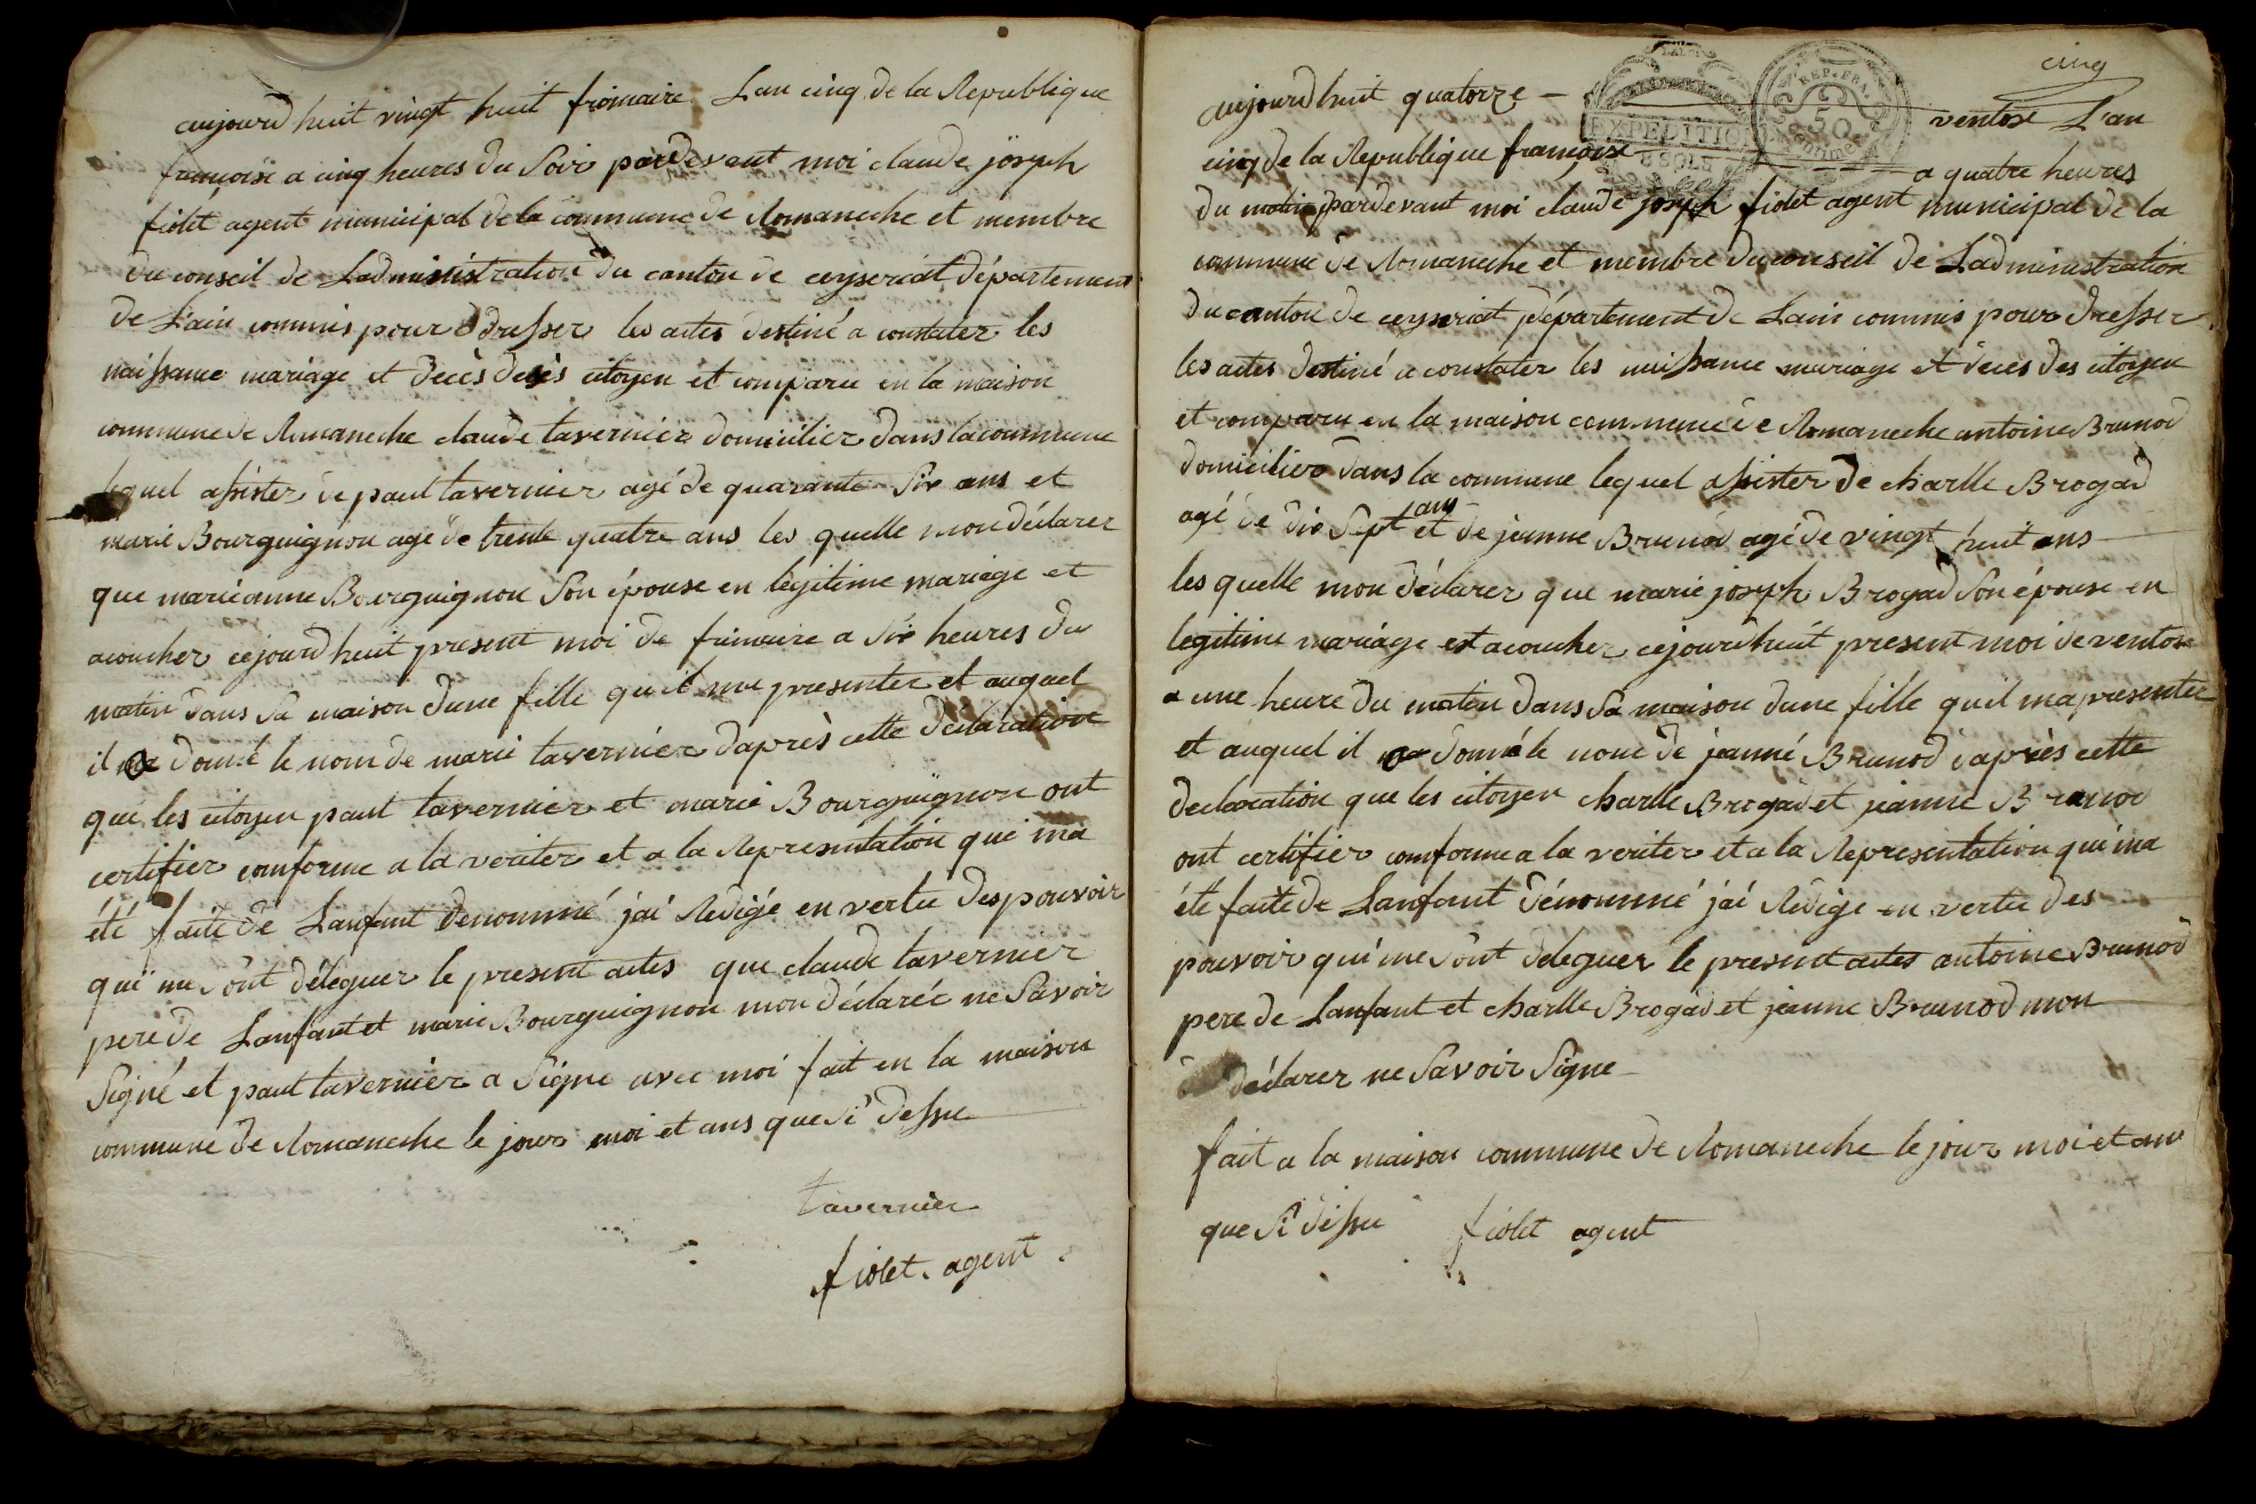 aujourd huit vingt huit frimaire Lan cinq de la Republique
francoise a cinq heures du Soir pardevant moi claude joseph
fiolet agent municipal de la commune de Romaneche et membre
du conseil de Ladministration du canton de ceyseriat département
de Lain commis pour dresser les actes destiné a constater les
naissance mariage et décès des citoyen et comparu en la maison
commune de Romaneche claude tavernier domicilier dans la commune
lequel assister de paul tavernier agé de quarante Six ans et
marie Bourguignon agé de trente quatre ans les quelle mon déclarer
que marieanne Bourguignon Son épouse en legitime mariage et
acoucher cejourd huit present moi de frimaire a Six heures du
matin dans Sa maison dune fille qu il ma presenter et auquel
il a donné le nom de marie tavernier daprès cette declaration
que les citoyen paul tavernier et marie Bourguignon ont
certifier comforme a la veriter et a la Representation qui ma
été faite de Lanfant denommé jai Redigé en vertu des pouvoir
qui me Sont déleguer le present actes que claude tavernier
pere de Lanfant et marie Bourguignon mon déclarée ne Savoir
Signé et paul tavernier a Signe avec moi fait en la maison
commune de Romaneche le jour moi et ans que Si dessu
tavernier
fiolet agent
cinq
EXPEDITION
8 SOLS
REP. FRA.
50
aujourd huit quatorze ventose Lan
cinq de la Republique françoise a quatre heures
du matin pardevant moi claude joseph fiolet agent municipal de la
commune de Romaneche et membre du conseil de Ladministration
du canton de ceyseriat département de Lain commis pour dresser
les actes destiné a constater les naissance mariage et deces des citoyen
et comparu en la maison commune de Romaneche antoine Brunod
domicilier dans la commune lequel assister de charlle Brogad
agé de dix Sept ans et de jeanne Brunod agé de vingt huit ans
les quelle mon déclarer que marie joseph Brogad Son épouse en
legitime mariage est acoucher cejourdhuit present moi de ventose
a une heure du matin dans Sa maison dune fille quil ma presentee
et auquel il a donné le nom de jeanne Brunod daprès cette
declaration que les citoyen charlle Brogad et jeanne Brunod
ont certifier comforme a la veriter et a la Representation qui ma
éte faite de Lanfant dénommé jai Redige en vertu des
pouvoir qui me Sont deleguer le present actes antoine Brunod
pere de Lanfant et charlle Brogad et jeanne Brunod mon
déclarer ne Savoir Signe
fait a la maison commune de Romaneche le jour moi et an
que Si dessu fiolet agent